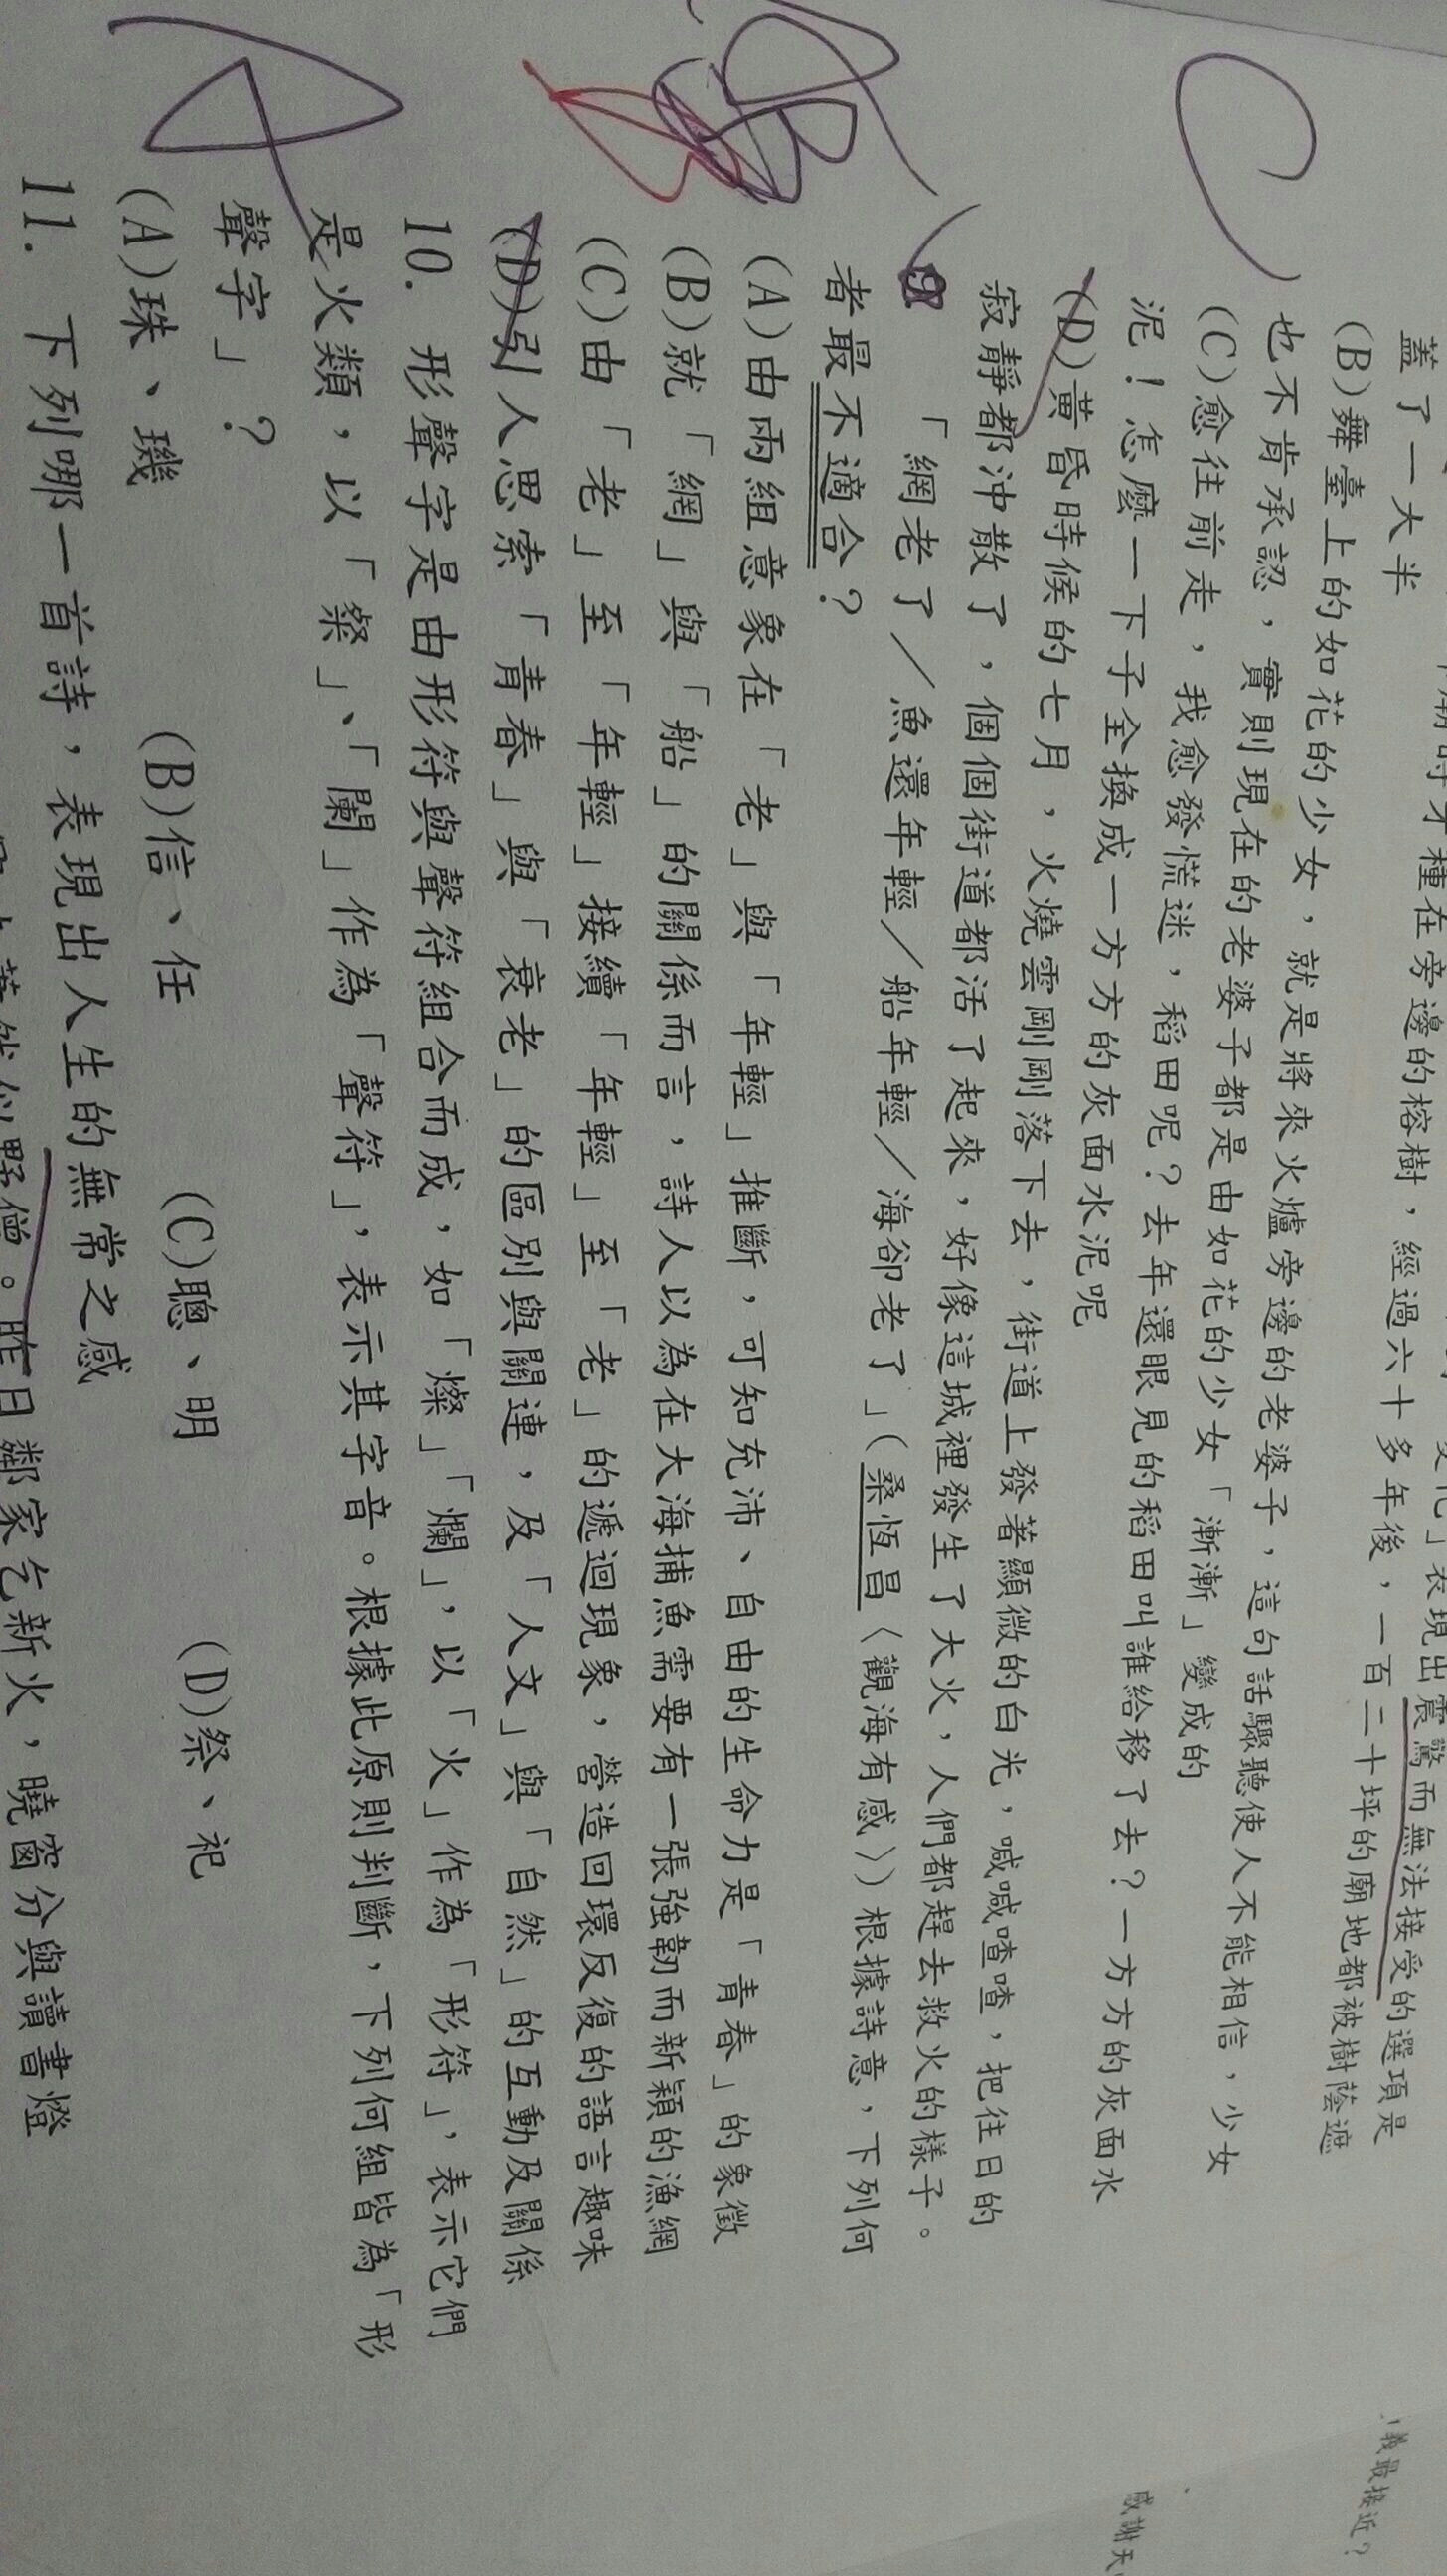 種在旁邊的榕樹，經過六十多年後，一百二十坪的廟地都被樹蔭遮
表現出震驚而無法接受的選項是
蓋了一大半
(B)舞臺上的如花的少女，就是將來火爐旁邊的老婆子，這句話驟聽使人不能相信，少女
也不肯承認，實則現在的老婆子都是由如花的少女「漸漸」變成的
(C)愈往前走，我愈發慌迷，稻田呢？去年還眼見的稻田叫誰給移了去？一方方的灰面水
泥！怎麼一下子全換成一方方的灰面水泥呢
(D)黃昏時候的七月，火燒雲剛剛落下去，街道上發著顯微的白光，嘁嘁喳喳，把往日的
寂靜都沖散了，個個街道都活了起來，好像這城裡發生了大火，人們都趕去救火的樣子。
C
9.「網老了／魚還年輕／船年輕／海卻老了」（桑恆昌〈觀海有感〉）根據詩意，下列何
者最不適合？
(A)由兩組意象在「老」與「年輕」推斷，可知充沛、自由的生命力是「青春」的象徵
(B)就「網」與「船」的關係而言，詩人以為在大海捕魚需要有一張強韌而新穎的漁網
(C)由「老」至「年輕」接續「年輕」至「老」的遞迴現象，營造回環反復的語言趣味
(D)引人思索「青春」與「衰老」的區別與關連，及「人文」與「自然」的互動及關係
B
10. 形聲字是由形符與聲符組合而成，如「燦」「爛」，以「火」作為「形符」，表示它們
是火類，以「粲」、「闌」作為「聲符」，表示其字音。根據此原則判斷，下列何組皆為「形
聲字」？
(A)珠、璣 (B)信、任 (C)聰、明 (D)祭、祀
A
11. 下列哪一首詩，表現出人生的無常之感
似野僧。昨日鄰家乞新火，曉窗分與讀書燈
義最接近？
感謝天